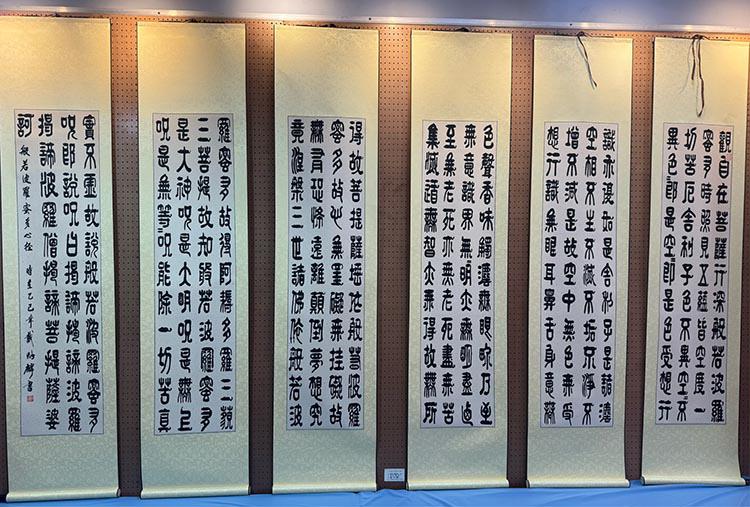 觀自在菩薩行深般若波羅
蜜多時照見五蘊皆空度一
切苦厄舍利子色不異空不
異色即是空即是色受想行
識亦復如是舍利子是諸法
空相不生不滅不垢不淨不
增不減是故空中無色無受
想行識無眼耳鼻舌身意無
色聲香味觸法無眼界乃至
無意識界無明亦無盡乃
至無老死亦無老死盡無苦
集滅道無智亦無得故無所
得故菩提薩埵依般若波羅
蜜多故心無罣礙無罣礙故
無有恐怖遠離顛倒夢想究
竟涅槃三世諸佛依般若波
羅蜜多故得阿耨多羅三藐
三菩提故知般若波羅蜜多
是大神咒是大明咒是無上
咒是無等咒能除一切苦真
實不虛故說般若波羅蜜多
咒即說咒曰揭諦揭諦波羅
揭諦波羅僧揭諦菩提薩婆
訶
般若波羅蜜多心經 乙巳年戴 書